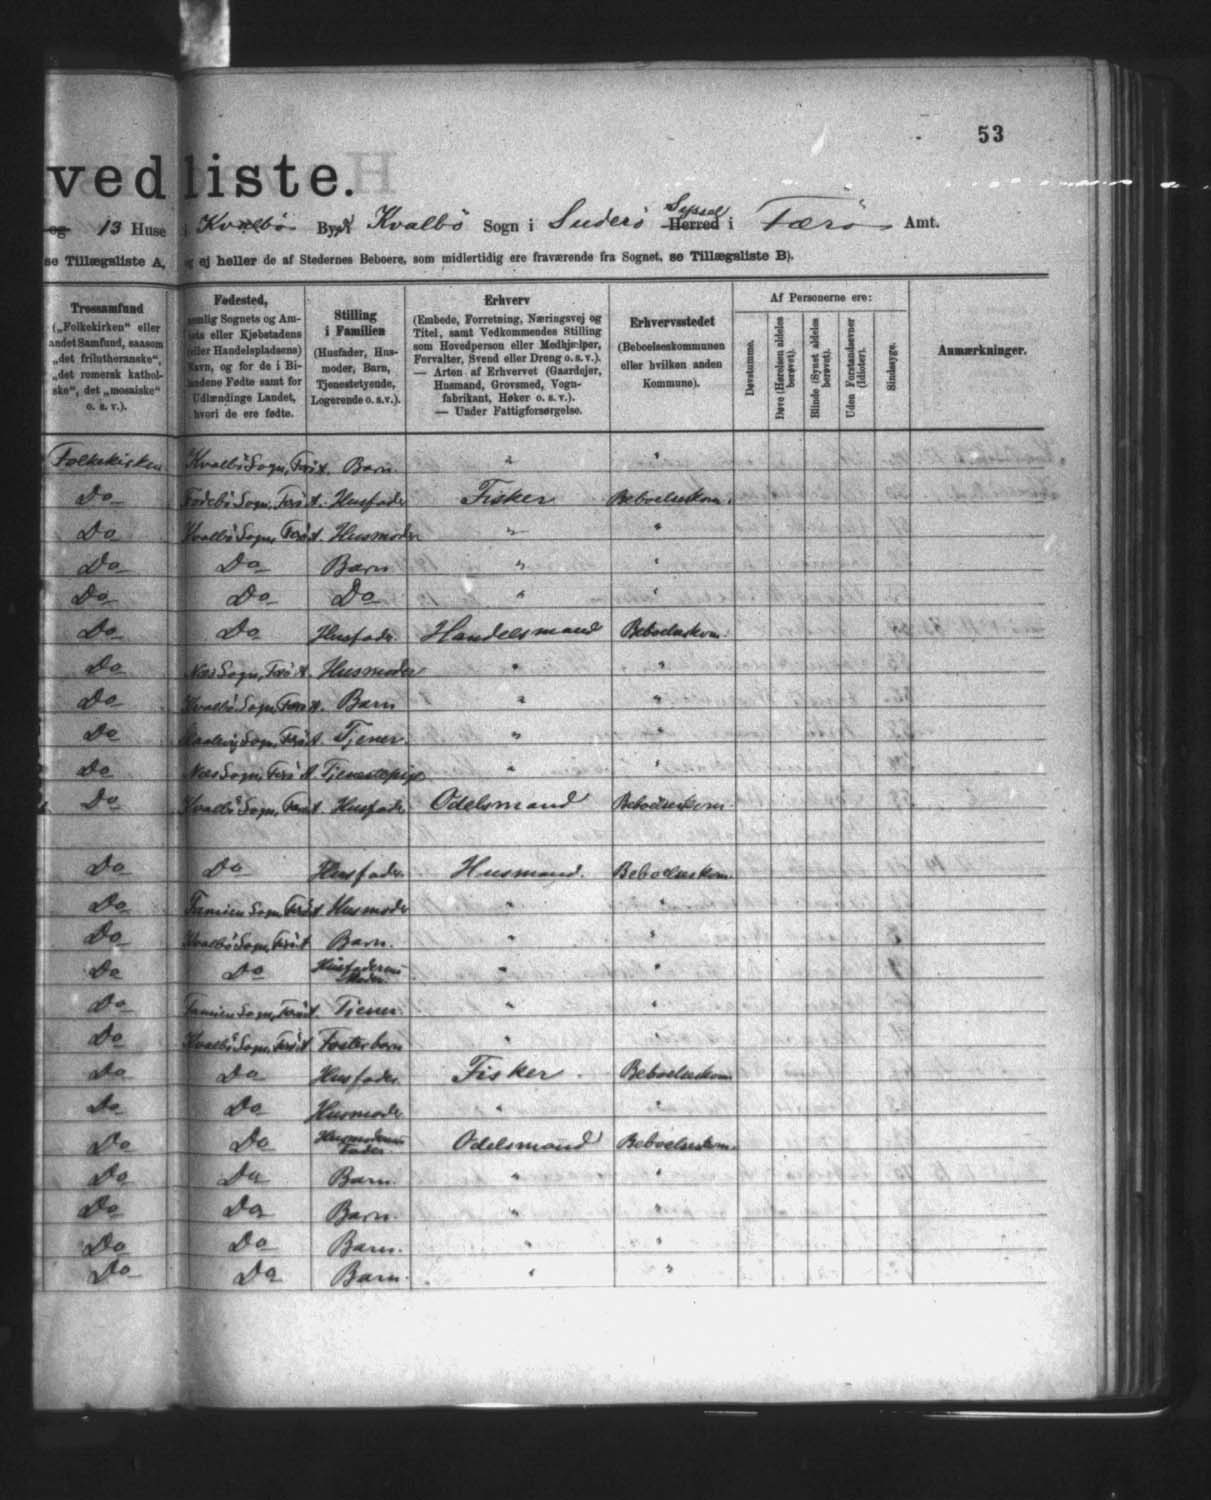 53
vedliste.
og 13 Huse i Kvalbø By, Kvalbø Sogn i Suderø Syssel Herred i Færø Amt.
se Tillægsliste A, og ej heller de af Stedernes Beboere, som midlertidig ere fraværende fra Sognet, se Tillægsliste B).
Trossamfund
(„Folkekirken“ eller
andet Samfund, saasom
„det frilutheranske“,
„det romersk kathol-
ske“, det „mosaiske“
o. s. v.).
Fødested,
nemlig Sognets og Am-
tets eller Kjøbstadens
(eller Handelspladsens)
Navn, og for de i Bi-
landene Fødte samt for
Udlændinge Landet,
hvori de ere fødte.
Stilling
i Familien
(Husfader, Hus-
moder, Barn,
Tjenestetyende,
Logerende o. s. v.).
Erhverv
(Embede, Forretning, Næringsvej og
Titel, samt Vedkommendes Stilling
som Hovedperson eller Medhjælper,
Forvalter, Svend eller Dreng o. s. v.).
— Arten af Erhvervet (Gaardejer,
Husmand, Grovsmed, Vogn-
fabrikant, Høker o. s. v.).
— Under Fattigforsørgelse.
Erhvervsstedet
(Beboelseskommunen
eller hvilken anden
Kommune).
Af Personerne ere:
Døvstumme.
Døve (Hørelsen aldeles berøvet).
Blinde (Synet aldeles berøvet).
Uden Forstandsevner (Idioter).
Sindssyge.
Anmærkninger.
Folkekirken Kvalbø Sogn, Færø A. Barn. " "
Do Sogn, Færø A. Husfader Fisker Beboelseskom.
Do Kvalbø Sogn, Færø A. Husmoder " "
Do Do Barn " "
Do Do Do " "
Do Do Husfader Handelsmand Beboelseskom.
Do Næs Sogn, Færø A. Husmoder " "
Do Kvalbø Sogn, Færø A. Barn " "
Do Sogn, Færø A. Tjener. " "
Do Næs Sogn, Færø A Tjenestepige " "
Do Kvalbø Sogn, Færø A. Husfader Odelsmand Beboelseskom.
Do Do Husfader Husmand. Beboelseskom.
Do Sogn, Færø A Husmoder " "
Do Kvalbø Sogn, Færø A Barn. " "
Do Do Husfaderens Moder " "
Do Sogn, Færø A. Tjener. "
Do Kvalbø Sogn, Færø A Fosterbarn "
Do Do Husfader Fisker. Beboelseskom
Do Do Husmoder " "
Do Do Husmoderens Fader. Odelsmand Beboelseskom.
Do Do Barn. " "
Do Do Barn. " "
Do Do Barn. " "
Do Do Barn. " "